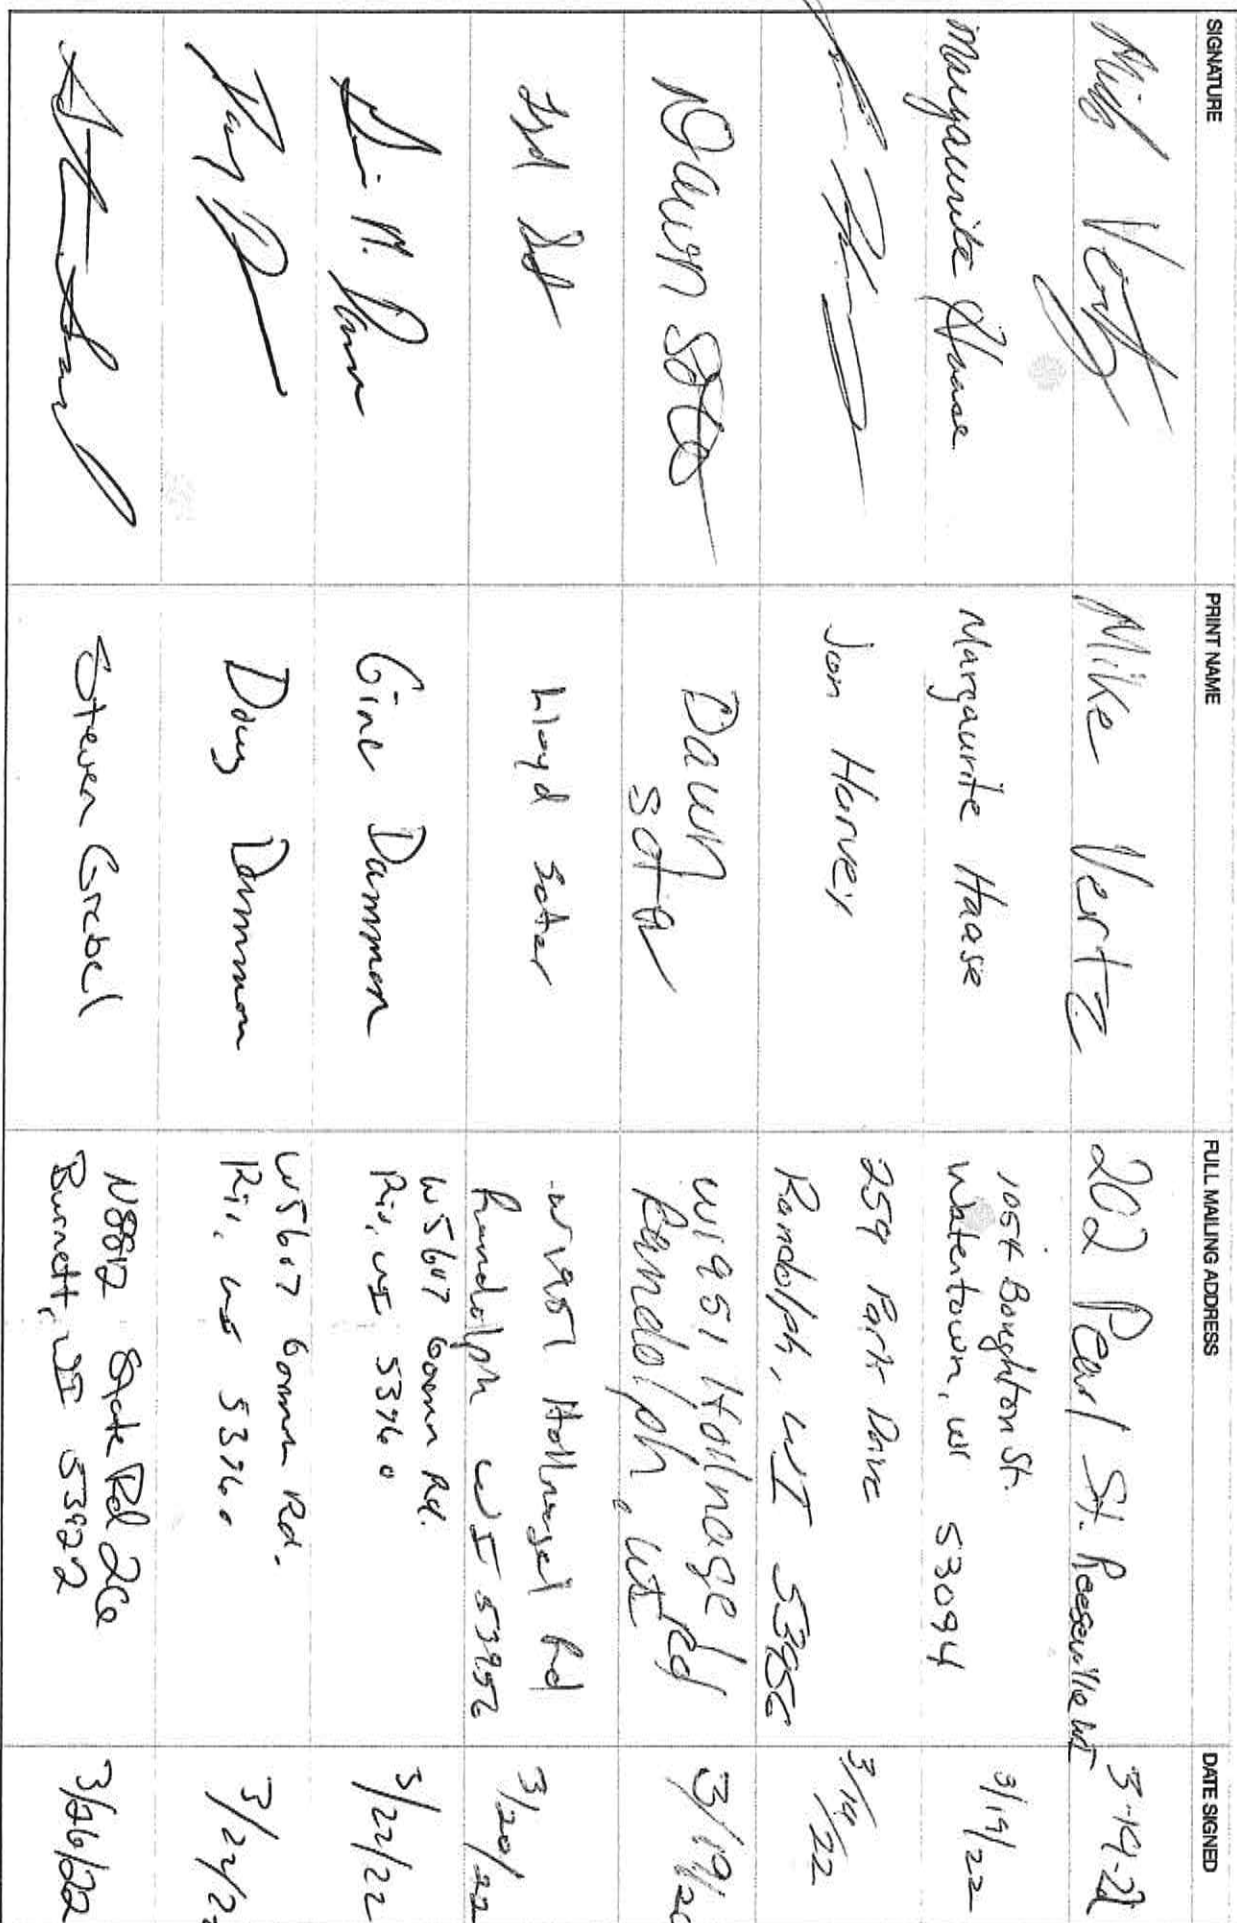 SIGNATURE PRINT NAME FULL MAILING ADDRESS DATE SIGNED
Mike Vertz Mike Vertz 202 Pearl St. Reeseville WI 3-19-22
Margaurite Haase Margaurite Haase 1054 Boughton St.
Watertown, WI 53094 3/19/22
Jon Harvey 259 Park Drive
Randolph, WI 53956 3/19/22
Dawn Sota Dawn
Sota W1951 Hollnagel Rd
Randolph, WI 3/19/20
Lloyd Soter W1951 Hollnagel Rd
Randolph WI 53956 3/20/22
Gina M. Damman Gina Damman W5607 Gorman Rd.
Rio, WI 53960 3/22/22
Doug Damman W5607 Gorman Rd.
Rio, WI 53960 3/22/2
Steven Grebel N8812 State Rd 26
Burnett, WI 53922 3/26/22